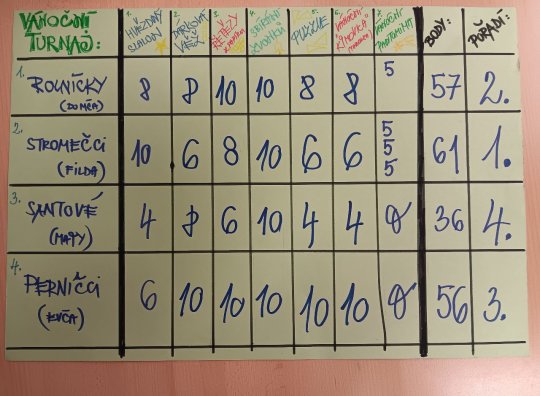 VÁNOČNÍ
TURNAJ:
1. HVĚZDNÝ SLALOM
2. DÁRKOVÁ
3. ŘETĚZY
4.
5. PUZZLE
6. VÁNOČNÍ KIMOVKA
7. VÁNOČNÍ PANTOMIMA
BODY:
POŘADÍ:
1. ROLNIČKY 8 8 10 10 8 8 5 57 2.
(DOMČA)
2. STROMEČCI 10 6 8 10 6 6 5 5 5 61 1.
(FILDA)
3. SANTOVÉ 4 8 6 10 4 4 0 36 4.
(MATY)
4. PERNÍČCI 6 10 10 10 10 10 0 56 3.
(EVČA)